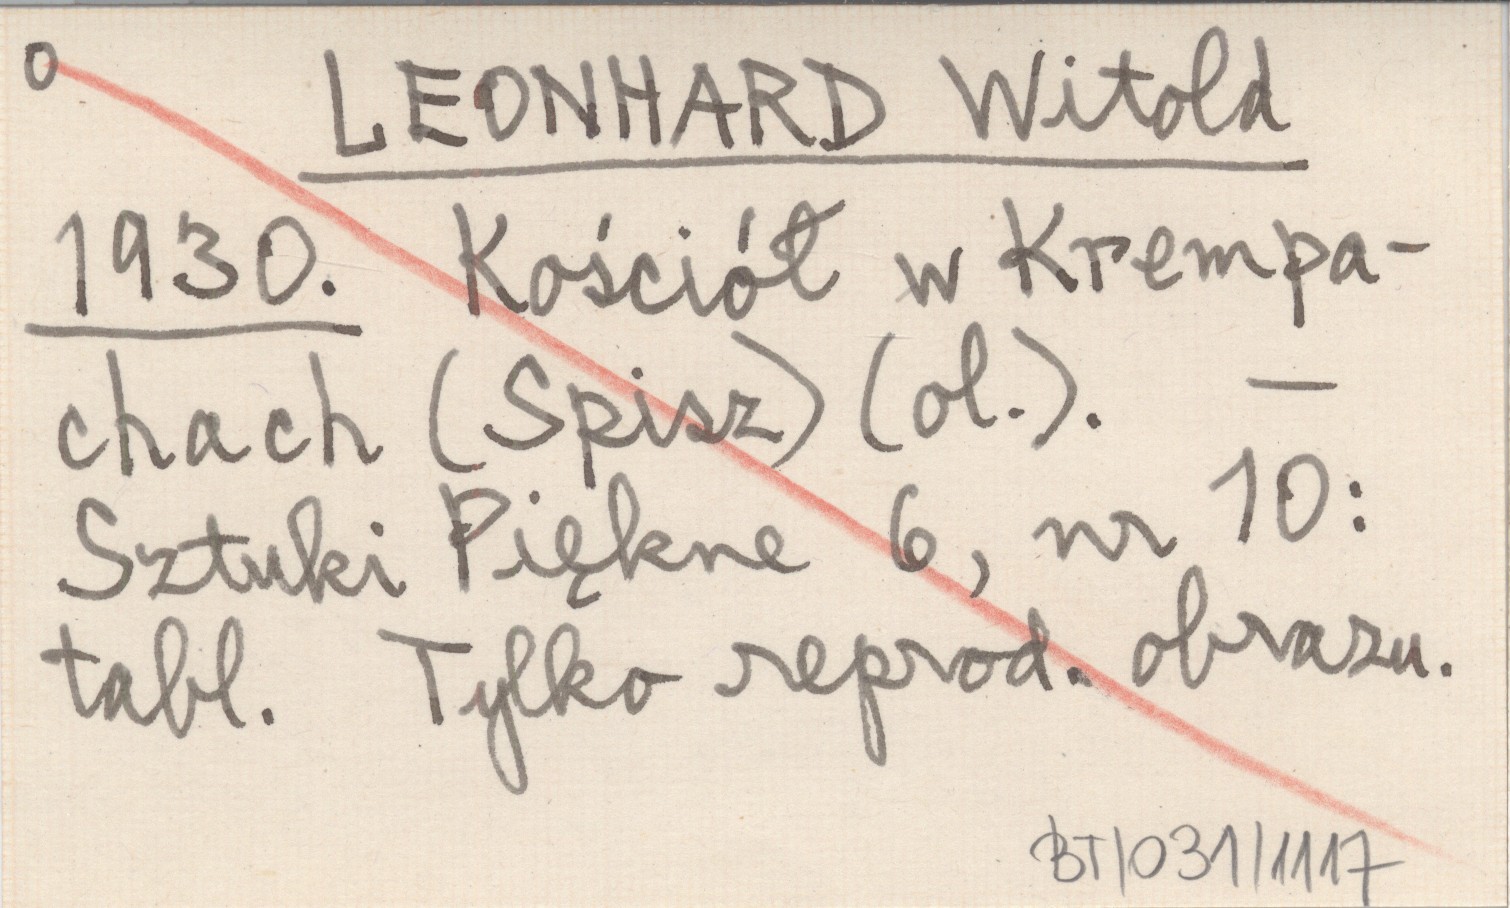 0 LEONHARD Witold
1930. Kościół w Krempa-
chach (Spisz) (ol.). —
Sztuki Piękne 6, nr 10:
tabl. Tylko reprod. obrazu.
BT/031/1117